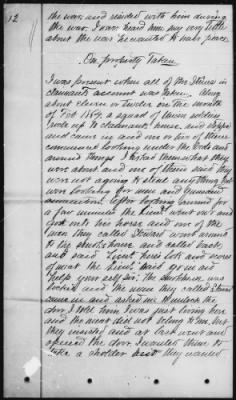 12
the war, and resided with him during
the war. I never heard him say very little
about the war he wanted to have peace.
On property Taken.
I was present when all of the Stores in
claimants account was taken. Along
about eleven or twelve on the month
of Feb 1864, a squad of Union soldiers
rode up to claimants house, and stopped
and come in and one or two of them
commenced looking under the beds and
around things I asked them what they
were about and one of them said they
was not agoing to steal anything but
was looking for men and
ammunition. After looking around for
a few minutes the Lieut went out and
got onto his horse and one of the
men they called went around
to the smoke house and called back,
and said Lieut here's lots and scores
of meat the Lieut said go in and
help yourself. The smokehouse was
locked and the man they called
came in and asked me to unlock the
door, I told him I was just living here
and the meat did not belong to me, but
they insisted and at last went and
opened the door. I wanted them to
take a sholder and they wanted